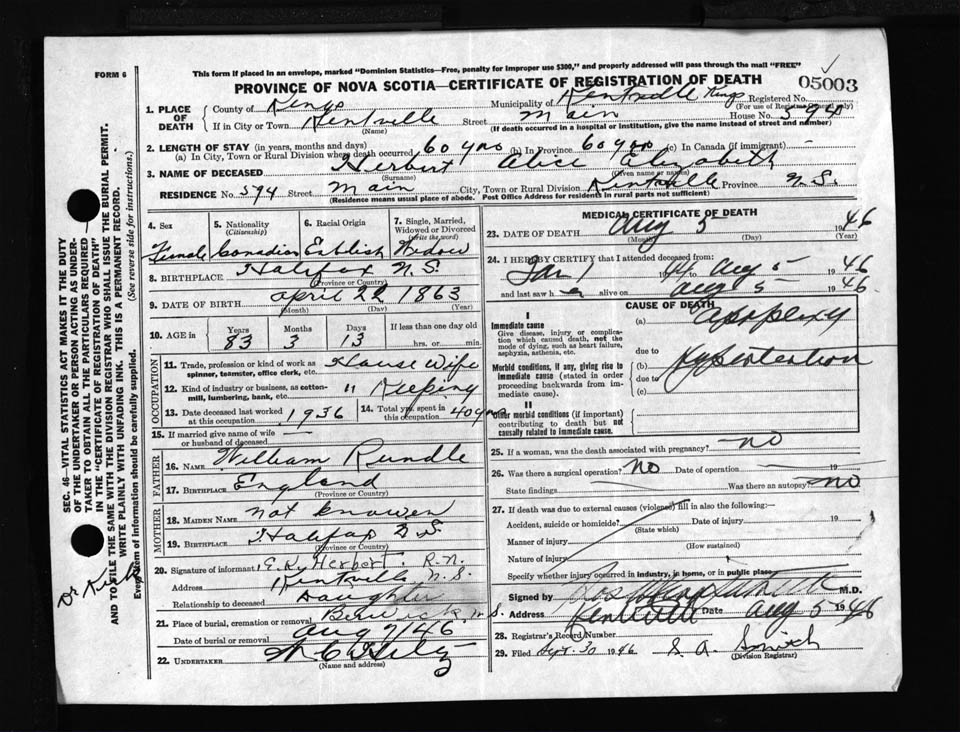 FORM 6
This form if placed in an envelope, marked "Dominion Statistics—Free, penalty for improper use $300," and properly addressed will pass through the mail "FREE"
PROVINCE OF NOVA SCOTIA—CERTIFICATE OF REGISTRATION OF DEATH
05003
1. PLACE OF DEATH
County of Kings
Municipality of Kentville Kings
Registered No.
(For use of Registrar only)
If in City or Town Kentville Street Main House No. 594
(Name) (If death occurred in a hospital or institution, give the name instead of street and number)
2. LENGTH OF STAY (in years, months and days)
(a) In City, Town or Rural Division where death occurred 60 yrs (b) In Province 60 yrs (c) In Canada (if immigrant) —
3. NAME OF DECEASED Herbert Alice Elizabeth
(Surname) (Given name or names)
RESIDENCE No. 594 Street Main City, Town or Rural Division Kentville Province N.S.
(Residence means usual place of abode. Post Office Address for residents in rural parts not sufficient)
4. Sex
Female
5. Nationality (Citizenship)
Canadian
6. Racial Origin
Eablish
7. Single, Married, Widowed or Divorced (Write the word)
Widow
8. BIRTHPLACE Halifax N.S.
(Province or Country)
9. DATE OF BIRTH April 22 1863
(Month) (Day) (Year)
10. AGE in Years Months Days If less than one day old
83 3 13 hrs. or min.
OCCUPATION
11. Trade, profession or kind of work as spinner, teamster, office clerk, etc. House Wife
12. Kind of industry or business, as cotton-mill, lumbering, bank, etc. " Keeping
13. Date deceased last worked at this occupation 1936
14. Total yrs. spent in this occupation 40 yrs
15. If married give name of wife or husband of deceased —
FATHER
16. NAME William Rundle
17. BIRTHPLACE England
(Province or Country)
MOTHER
18. MAIDEN NAME not knowen
19. BIRTHPLACE Halifax N S
(Province or Country)
20. Signature of informant E. Ly Herbert. R.N.
Address Kentville N.S.
Relationship to deceased Daughter
21. Place of burial, cremation or removal Berwick, N.S.
Date of burial or removal Aug 7/46
22. UNDERTAKER
(Name and address)
MEDICAL CERTIFICATE OF DEATH
23. DATE OF DEATH Aug 5 1946
(Month) (Day) (Year)
24. I HEREBY CERTIFY that I attended deceased from:
Jan 1 to Aug 5 1946
and last saw h alive on Aug 5 1946.
CAUSE OF DEATH
I
Immediate cause
Give disease, injury or complication which caused death, not the mode of dying, such as heart failure, asphyxia, asthenia, etc.
(a) apoplexy
due to
Morbid conditions, if any, giving rise to immediate cause (stated in order proceeding backwards from immediate cause).
(b) Hypertention
due to
(c)
II
Other morbid conditions (if important) contributing to death but not causally related to immediate cause.
25. If a woman, was the death associated with pregnancy? no
26. Was there a surgical operation? no Date of operation 19
State findings Was there an autopsy? no
27. If death was due to external causes (violence) fill in also the following:—
Accident, suicide or homicide? Date of injury 19
(State which)
Manner of injury
(How sustained)
Nature of injury
Specify whether injury occurred in industry, in home, or in public place
Signed by M.D.
Address Kentville Date Aug 5 1946
28. Registrar's Record Number
29. Filed Sept. 30 1946 S. A. Smith
(Division Registrar)
SEC. 46—VITAL STATISTICS ACT MAKES IT THE DUTY
OF THE UNDERTAKER OR PERSON ACTING AS UNDERTAKER TO OBTAIN ALL THE PARTICULARS REQUIRED
IN THE "CERTIFICATE OF REGISTRATION OF DEATH"
AND TO FILE THE SAME WITH THE DIVISION REGISTRAR WHO SHALL ISSUE THE BURIAL PERMIT.
WRITE PLAINLY WITH UNFADING INK. THIS IS A PERMANENT RECORD.
Every item of information should be carefully supplied. (See reverse side for instructions.)